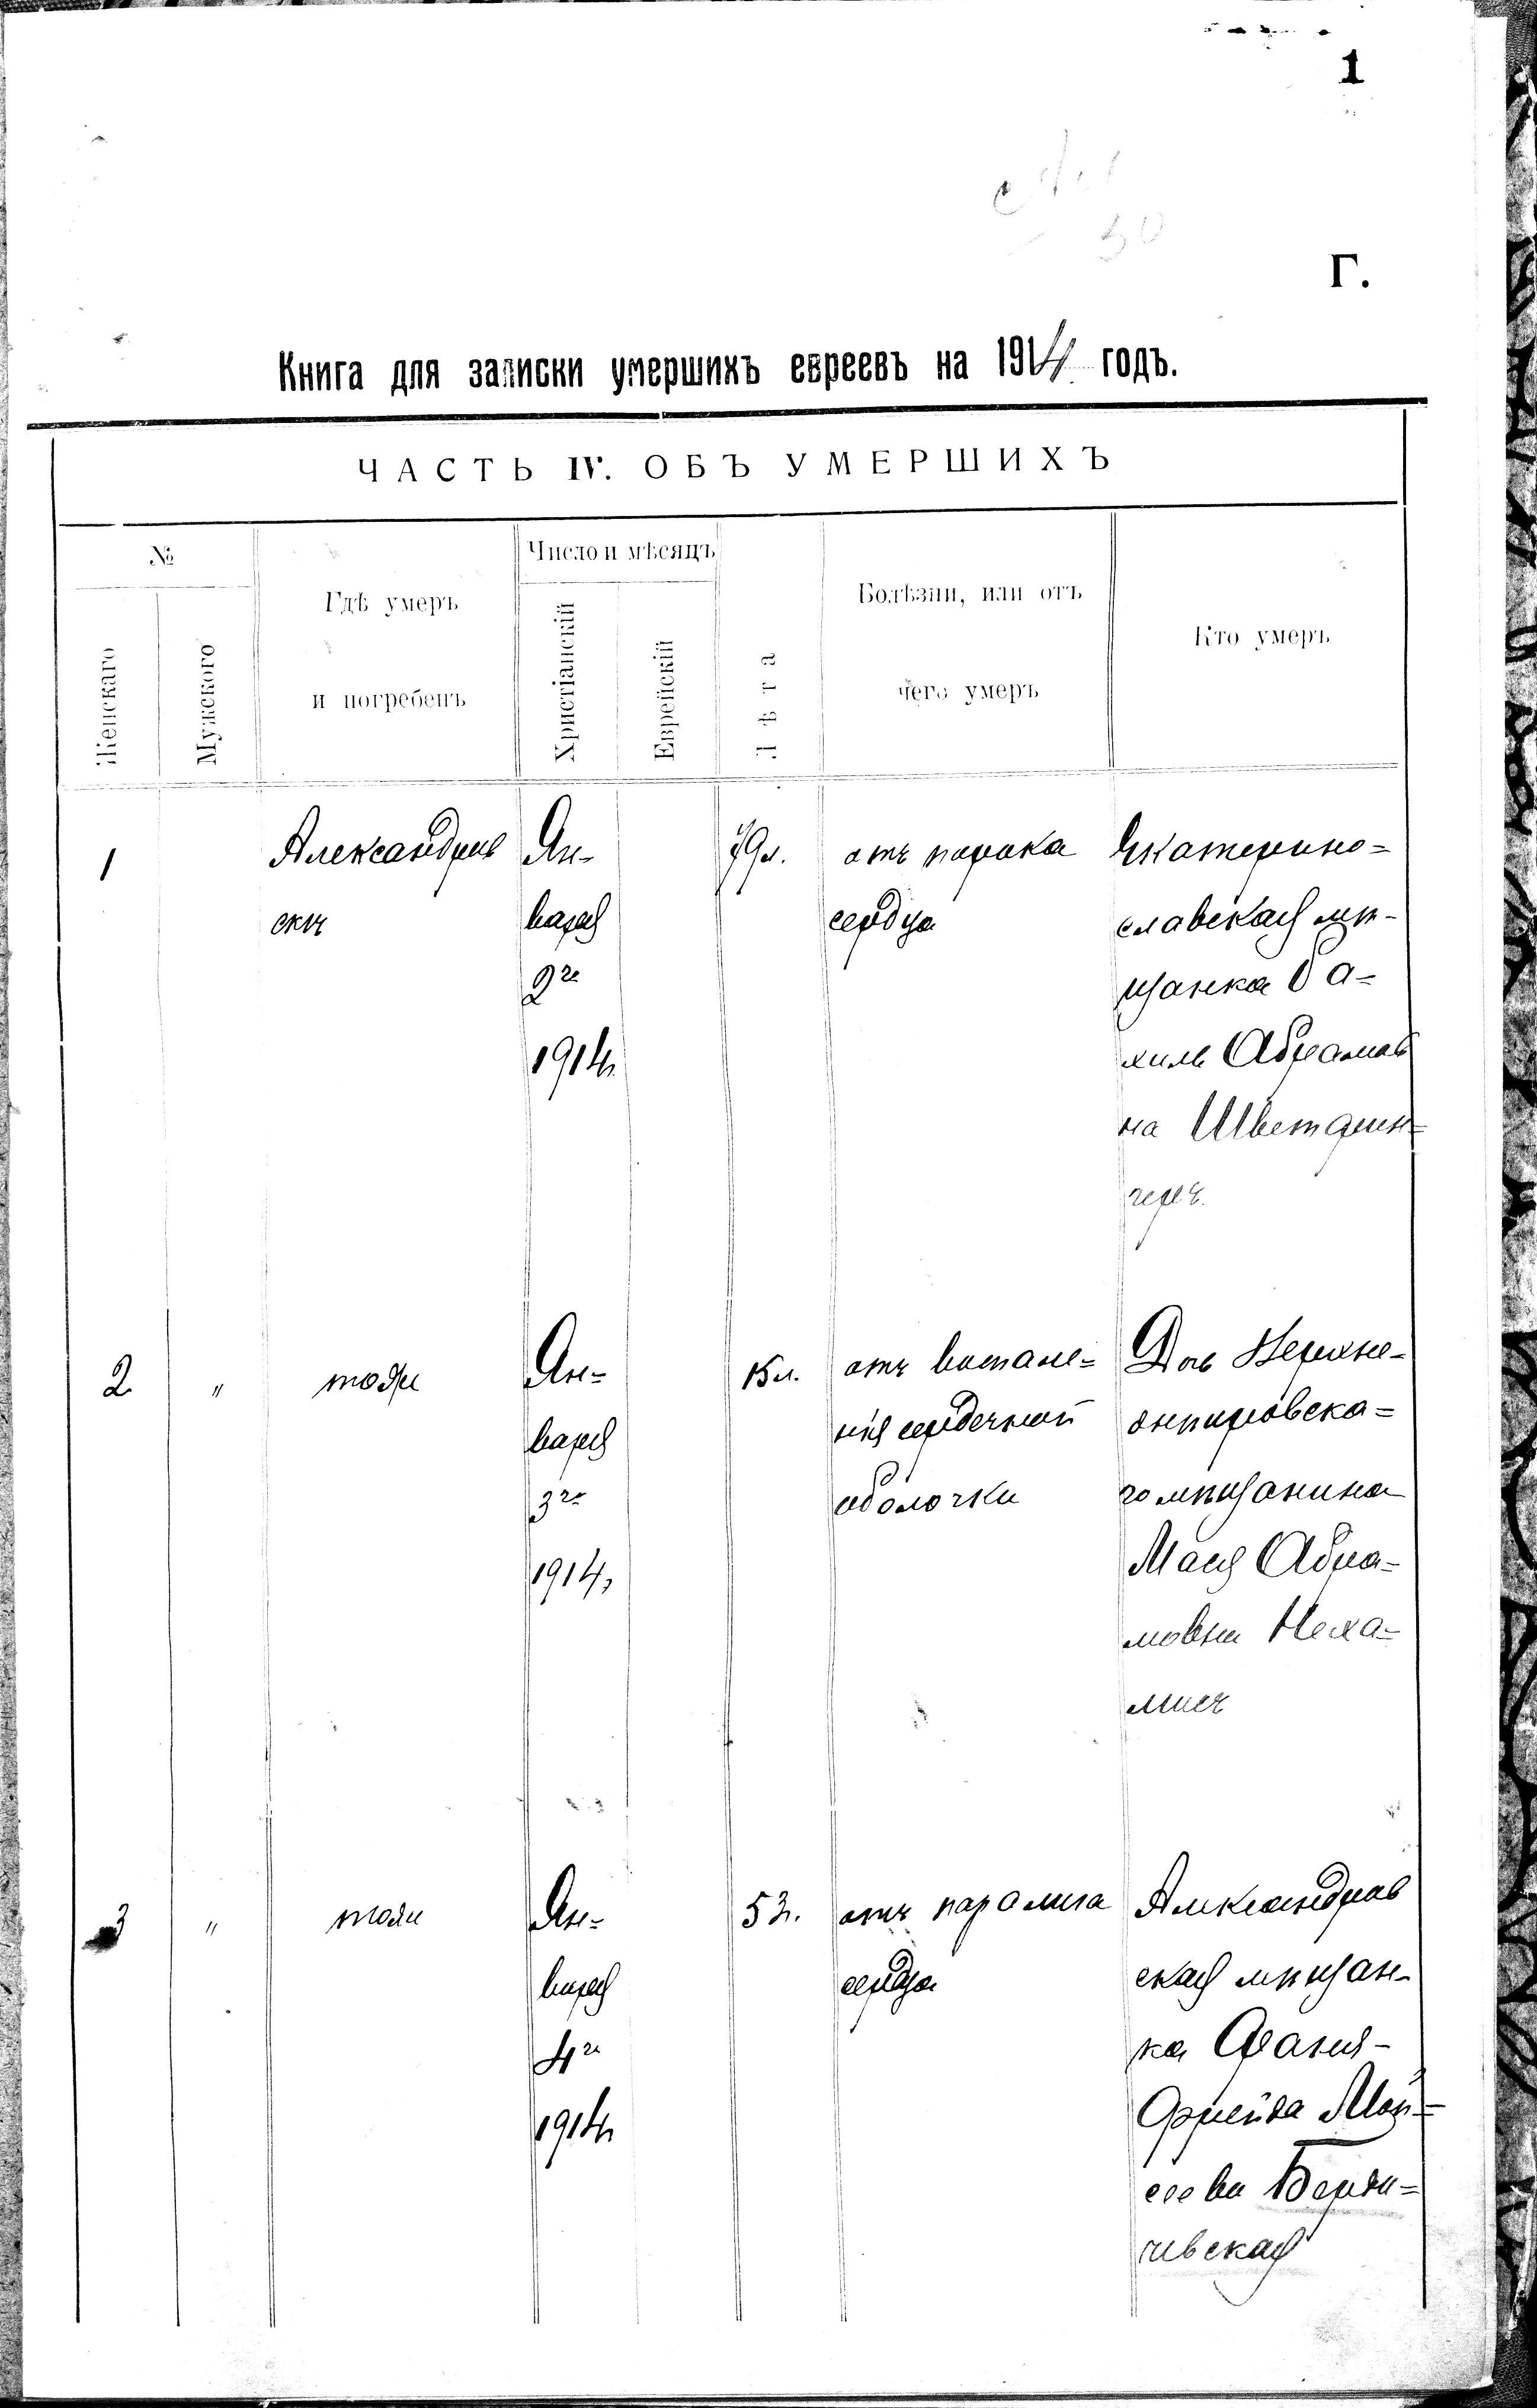 1
Г.
Книга для записки умершихъ евреевъ на 1914 годъ.
ЧАСТЬ IV. ОБЪ УМЕРШИХЪ
№
Женскаго
Мужского
Гдѣ умеръ
и погребенъ
Число и мѣсяцъ
Христіанскій
Еврейскій
Лѣта
Болѣзни, или отъ
чего умеръ
Кто умеръ
1
Александров
скъ
Ян-
варя
2го
1914г.
79л.
отъ порока
сердца
Екатерино=
славская мѣ-
щанка Ра=
хиль Абрамов
на Швет
2
"
тоже
Ян=
варя
3го
1914г.
15л.
отъ воспале=
нія сердечной
оболочки
Дочь Верхне-
днѣпровска=
го мѣщанина
Мася Абра=
мовна Неха=
мисъ
3
"
тоже
Ян=
варя
4го
1914г.
53г.
отъ паралича
сердца
Александров
ская мѣщан-
ка
Фрейда Мои=
сеева Берди=
чевская